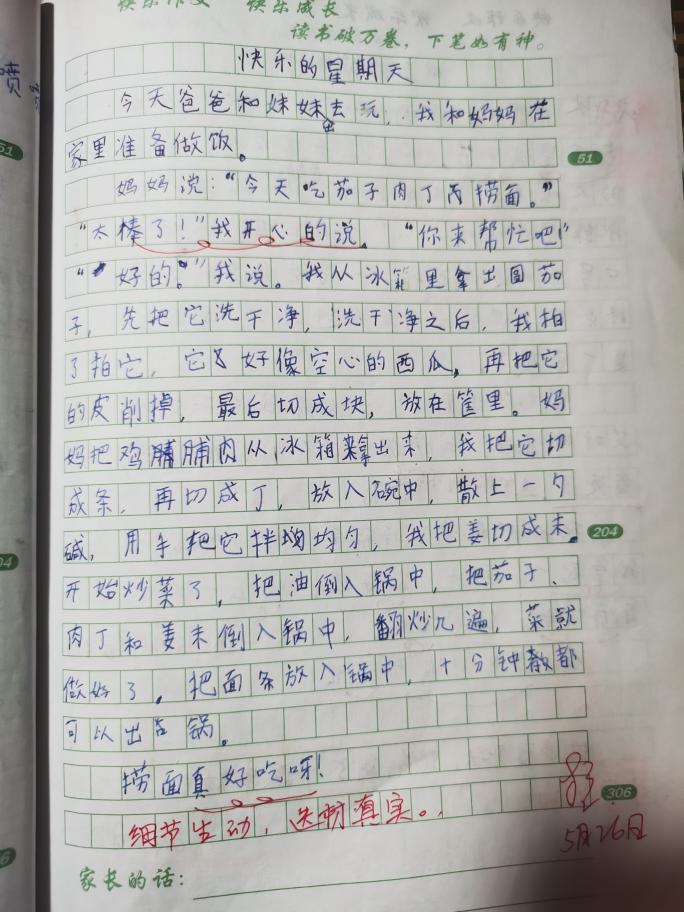 快乐作文 快乐成长
读书破万卷，下笔如有神。
快乐的星期天
今天爸爸和妹妹去玩，我和妈妈在
家里准备做饭。
51
妈妈说：“今天吃茄子肉丁丙捞面。”
“太棒了！”我开心的说。“你来帮忙吧”
“好的。”我说。我从冰箱里拿出圆茄
子，先把它洗干净，洗干净之后，我拍
了拍它，它好像空心的西瓜，再把它
的皮削掉，最后切成块，放在筐里。妈
妈把鸡脯肉从冰箱拿出来，我把它切
成条，再切成丁，放入碗中，散上一勺
碱，用手把它拌均匀，我把姜切成末。
204
开始炒菜了，把油倒入锅中，把茄子、
肉丁和姜末倒入锅中，翻炒几遍，菜就
做好了。把面条放入锅中，十分钟都
可以出锅。
捞面真好吃呀！
306
细节生动，选材真实。
5月26日
家长的话：
喷
51